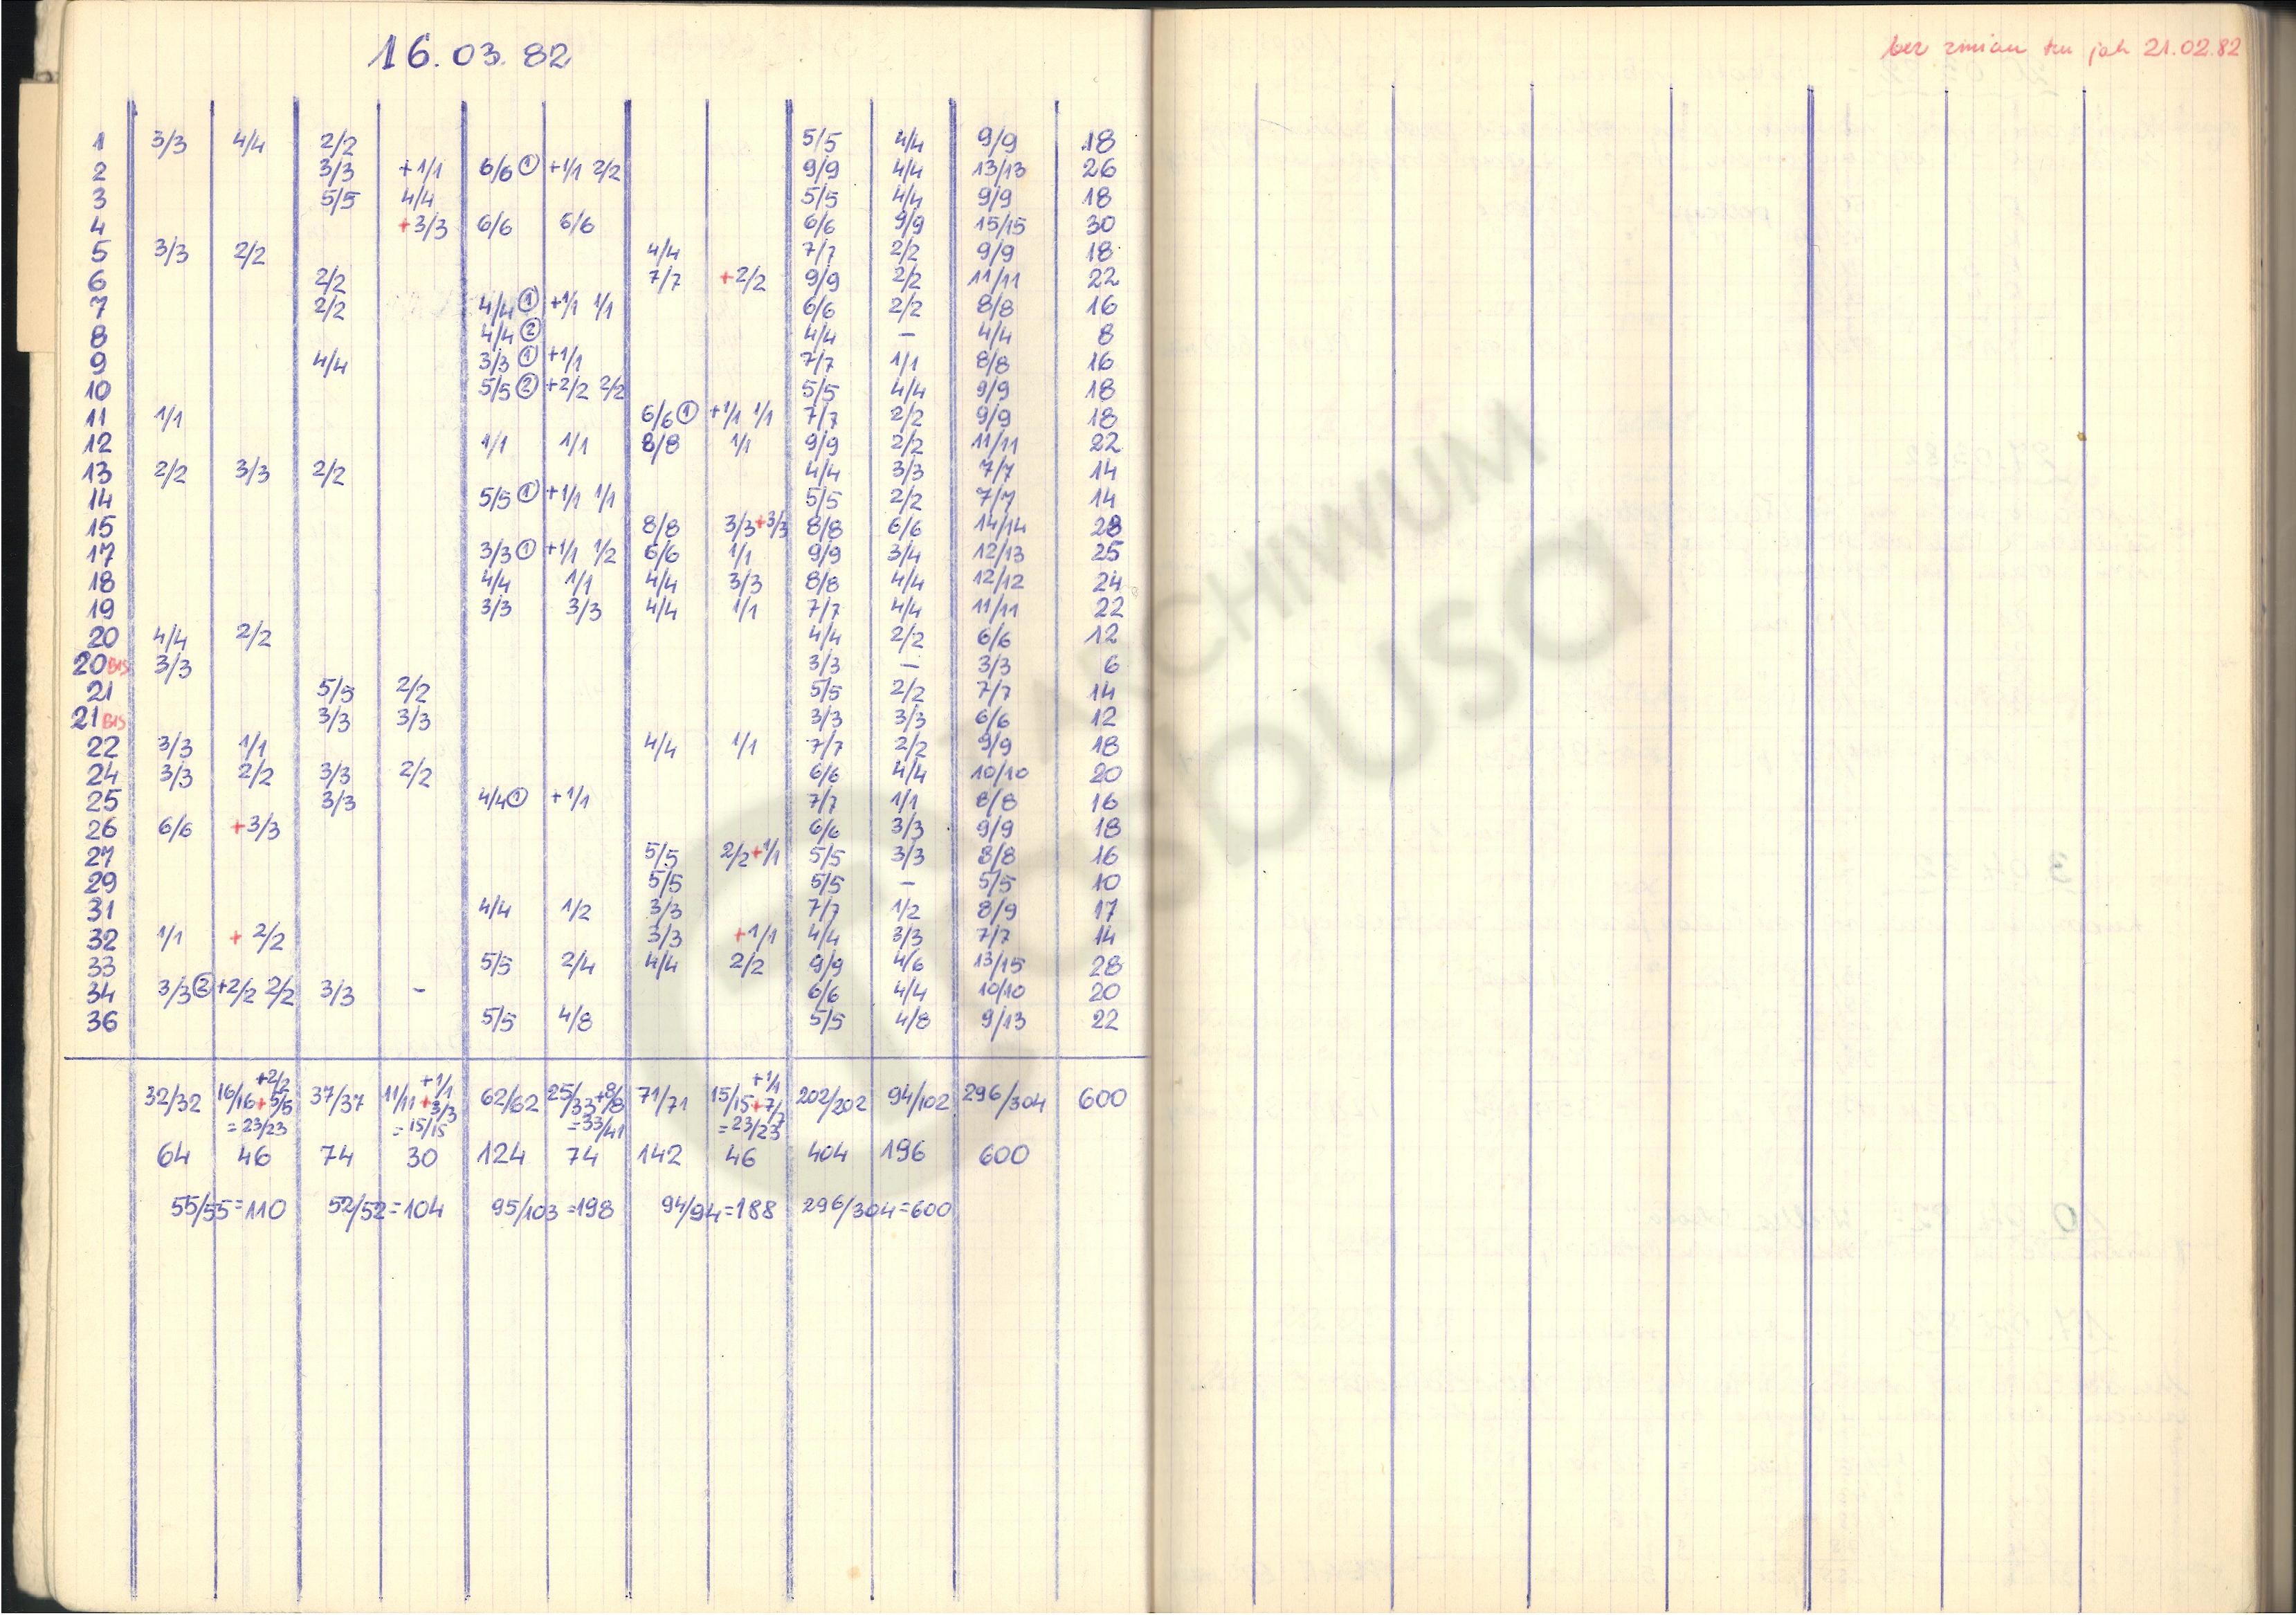 16.03.82
bez zmian tzn jak 21.02.82
1 3/3 4/4 2/2 5/5 4/4 9/9 18
2 3/3 +1/1 6/6 ① +1/1 2/2 9/9 4/4 13/13 26
3 5/5 4/4 5/5 4/4 9/9 18
4 +3/3 6/6 6/6 6/6 9/9 15/15 30
5 3/3 2/2 4/4 7/7 2/2 9/9 18
6 2/2 7/7 +2/2 9/9 2/2 11/11 22
7 2/2 4/4 ① +1/1 1/1 6/6 2/2 8/8 16
8 4/4 ② 4/4 – 4/4 8
9 4/4 3/3 ① +1/1 7/7 1/1 8/8 16
10 5/5 ② +2/2 2/2 5/5 4/4 9/9 18
11 1/1 6/6 ① +1/1 1/1 7/7 2/2 9/9 18
12 1/1 1/1 8/8 1/1 9/9 2/2 11/11 22
13 2/2 3/3 2/2 4/4 3/3 7/7 14
14 5/5 ① +1/1 1/1 5/5 2/2 7/7 14
15 8/8 3/3+3/3 8/8 6/6 14/14 28
17 3/3 ① +1/1 1/2 6/6 1/1 9/9 3/4 12/13 25
18 4/4 1/1 4/4 3/3 8/8 4/4 12/12 24
19 3/3 3/3 4/4 1/1 7/7 4/4 11/11 22
20 4/4 2/2 4/4 2/2 6/6 12
20 BIS 3/3 3/3 – 3/3 6
21 5/5 2/2 5/5 2/2 7/7 14
21 BIS 3/3 3/3 3/3 3/3 6/6 12
22 3/3 1/1 4/4 1/1 7/7 2/2 9/9 18
24 3/3 2/2 3/3 2/2 6/6 4/4 10/10 20
25 3/3 4/4 ① +1/1 7/7 1/1 8/8 16
26 6/6 +3/3 6/6 3/3 9/9 18
27 5/5 2/2+1/1 5/5 3/3 8/8 16
29 5/5 5/5 – 5/5 10
31 4/4 1/2 3/3 7/7 1/2 8/9 17
32 1/1 + 2/2 3/3 +1/1 4/4 3/3 7/7 14
33 5/5 2/4 4/4 2/2 9/9 4/6 13/15 28
34 3/3 ② +2/2 2/2 3/3 – 6/6 4/4 10/10 20
36 5/5 4/8 5/5 4/8 9/13 22
+2/2 +1/1 +1/1
32/32 16/16+5/5 37/37 11/11+3/3 62/62 25/33+8/8 71/71 15/15+7/7 202/202 94/102 296/304 600
=23/23 =15/15 =33/41 =23/23
64 46 74 30 124 74 142 46 404 196 600
55/55=110 52/52=104 95/103=198 94/94=188 296/304=600
ARCHIWUM